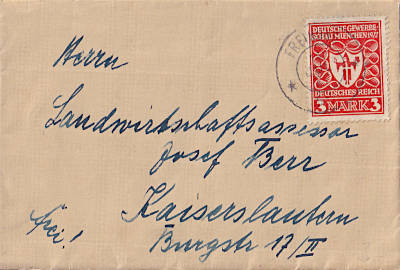 DEUTSCHE GEWERBE-
SCHAU MÜNCHEN 1922
DEUTSCHES REICH
3 MARK 3
FREI
Herrn
Landwirtschaftsassessor
Josef Berr
Kaiserslautern
frei!
Burgstr 17/II